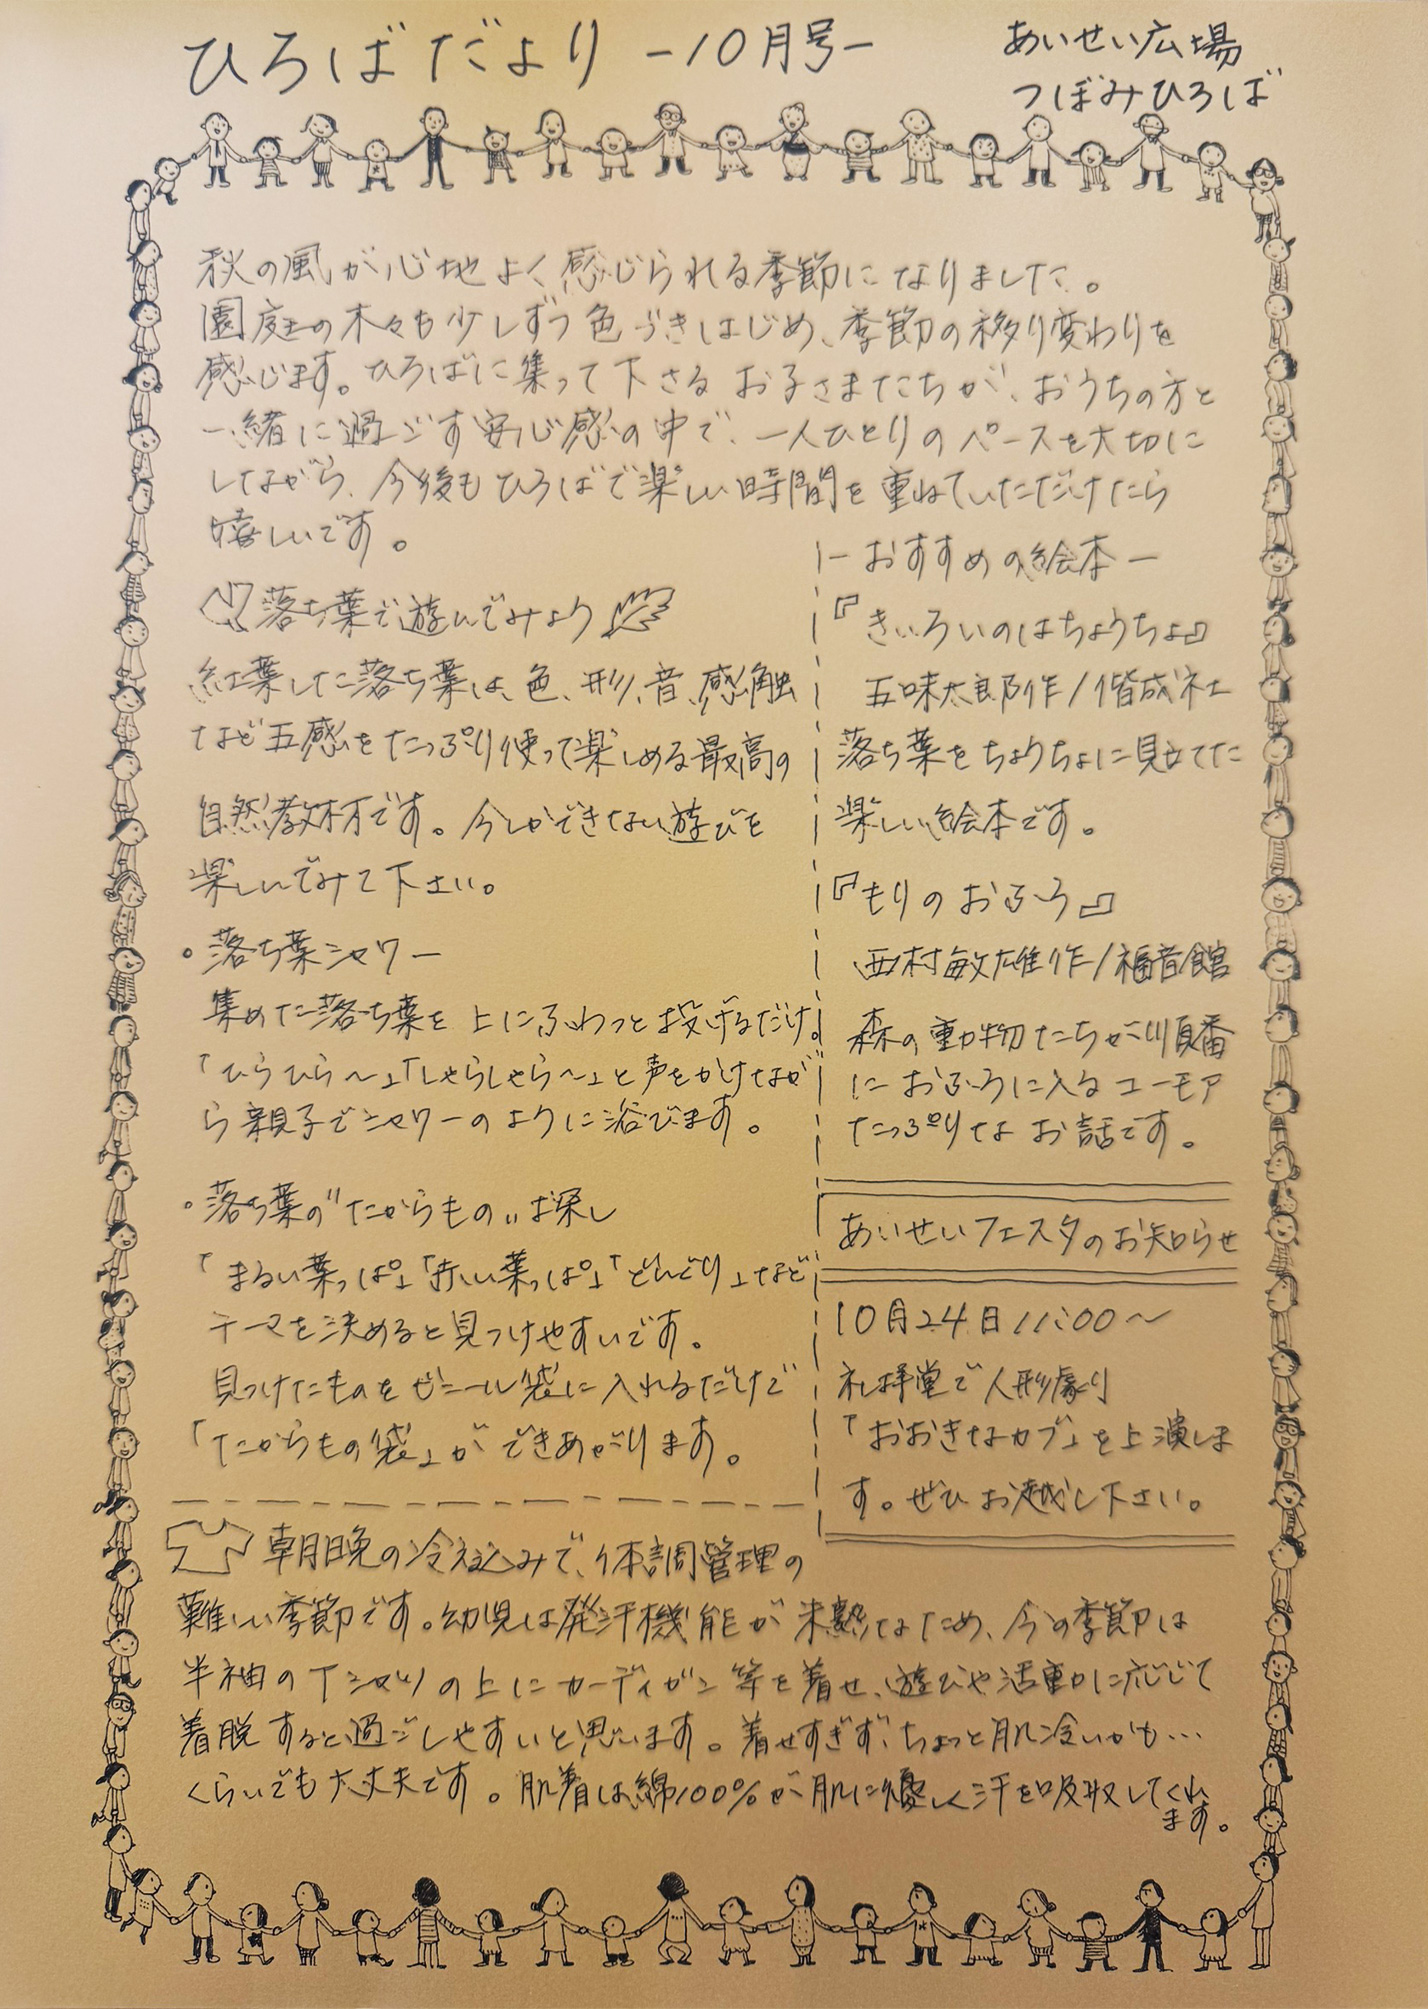 ひろばだより -10月号-
あいせい広場
つぼみひろば
秋の風が心地よく感じられる季節になりました。
園庭の木々も少しずつ色づきはじめ、季節の移り変わりを
感じます。ひろばに集って下さるお子さまたちが、おうちの方と
一緒に過ごす安心感の中で、一人ひとりのペースを大切に
しながら、今後もひろばで楽しい時間を重ねていただけたら
嬉しいです。
落ち葉で遊んでみよう
紅葉した落ち葉は、色、形、音、感触
など五感をたっぷり使って楽しめる最高の
自然教材です。今しかできない遊びを
楽しんでみて下さい。
・落ち葉シャワー
集めた落ち葉を上にふわっと投げるだけ。
「ひらひら〜」「しゃらしゃら〜」と声をかけなが
ら親子でシャワーのように浴びます。
・落ち葉の"たからもの"お探し
「まるい葉っぱ」「赤い葉っぱ」「どんぐり」など
テーマを決めると見つけやすいです。
見つけたものをビニール袋に入れるだけで
「たからもの袋」ができあがります。
-おすすめの絵本-
『きいろいのはちょうちょ』
五味太郎作/偕成社
落ち葉をちょうちょに見立てた
楽しい絵本です。
『もりのおふろ』
西村敏雄作/福音館
森の動物たちが順番
におふろに入るユーモア
たっぷりなお話です。
あいせいフェスタのお知らせ
10月24日11:00〜
礼拝堂で人形劇
「おおきなカブ」を上演しま
す。ぜひお越し下さい。
朝晩の冷え込みで、体調管理の
難しい季節です。幼児は発汗機能が未熟なため、今の季節は
半袖のTシャツの上にカーディガン等を着せ、遊びや活動に応じて
着脱すると過ごしやすいと思います。着せすぎず、ちょっと肌冷いかも…
くらいでも大丈夫です。肌着は綿100%が肌に優しく汗を吸収してくれ
ます。